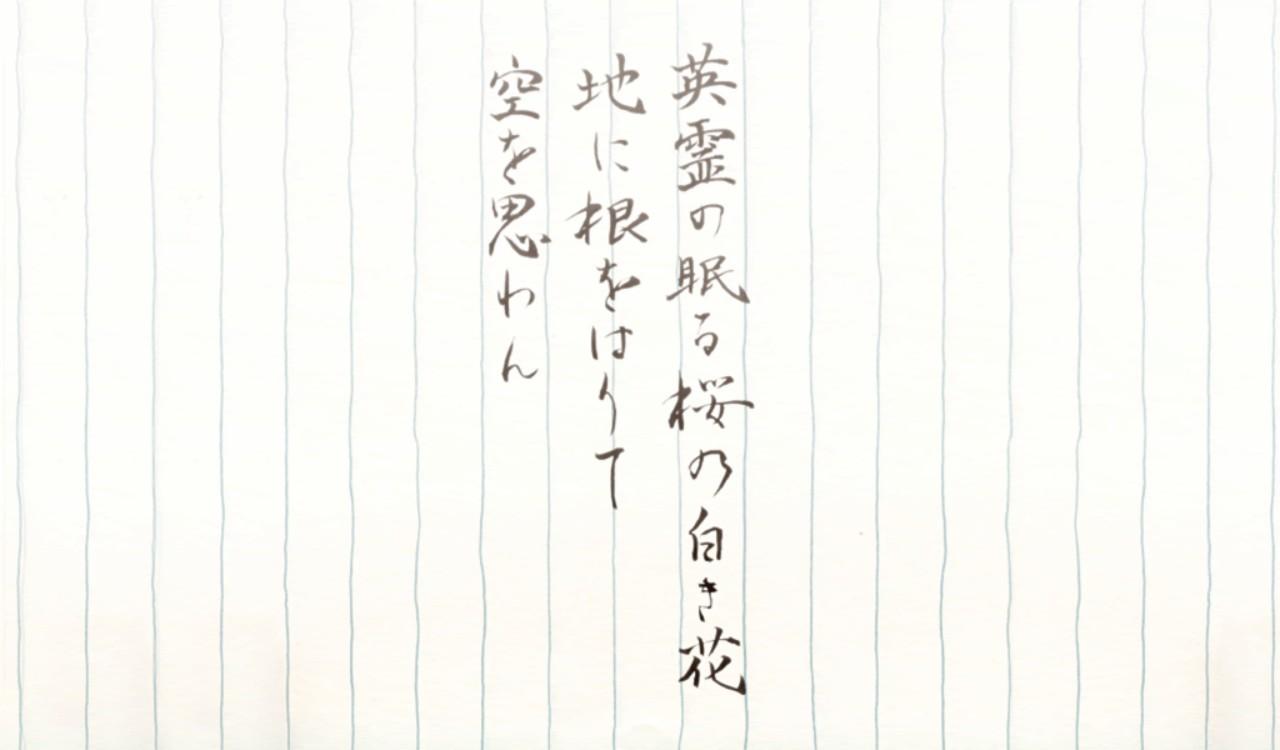 英霊の眠る桜の白き花
地に根をはりて
空を思わん